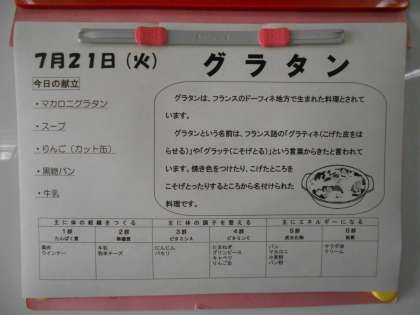 7月21日(火)
グラタン
今日の献立
・マカロニグラタン
・スープ
・りんご(カット缶)
・黒糖パン
・牛乳
グラタンは、フランスのドーフィネ地方で生まれた料理とされて
います。
グラタンという名前は、フランス語の「グラティネ(こげた皮をは
らせる)」や「グラッテ(こそげとる)」という言葉からきたと言われて
います。焼き色をつけたり、こげたところを
こそげとったりするところから名付けられた
料理です。
主に体の組織をつくる 主に体の調子を整える 主にエネルギーになる
1群 2群 3群 4群 5群 6群
たんぱく質 無機質 ビタミンA ビタミンC 炭水化物 脂質
鶏肉 牛乳 にんじん たまねぎ パン サラダ油
ウインナー 粉末チーズ パセリ グリンピース マカロニ クリーム
キャベツ 小麦粉
りんご缶 パン粉